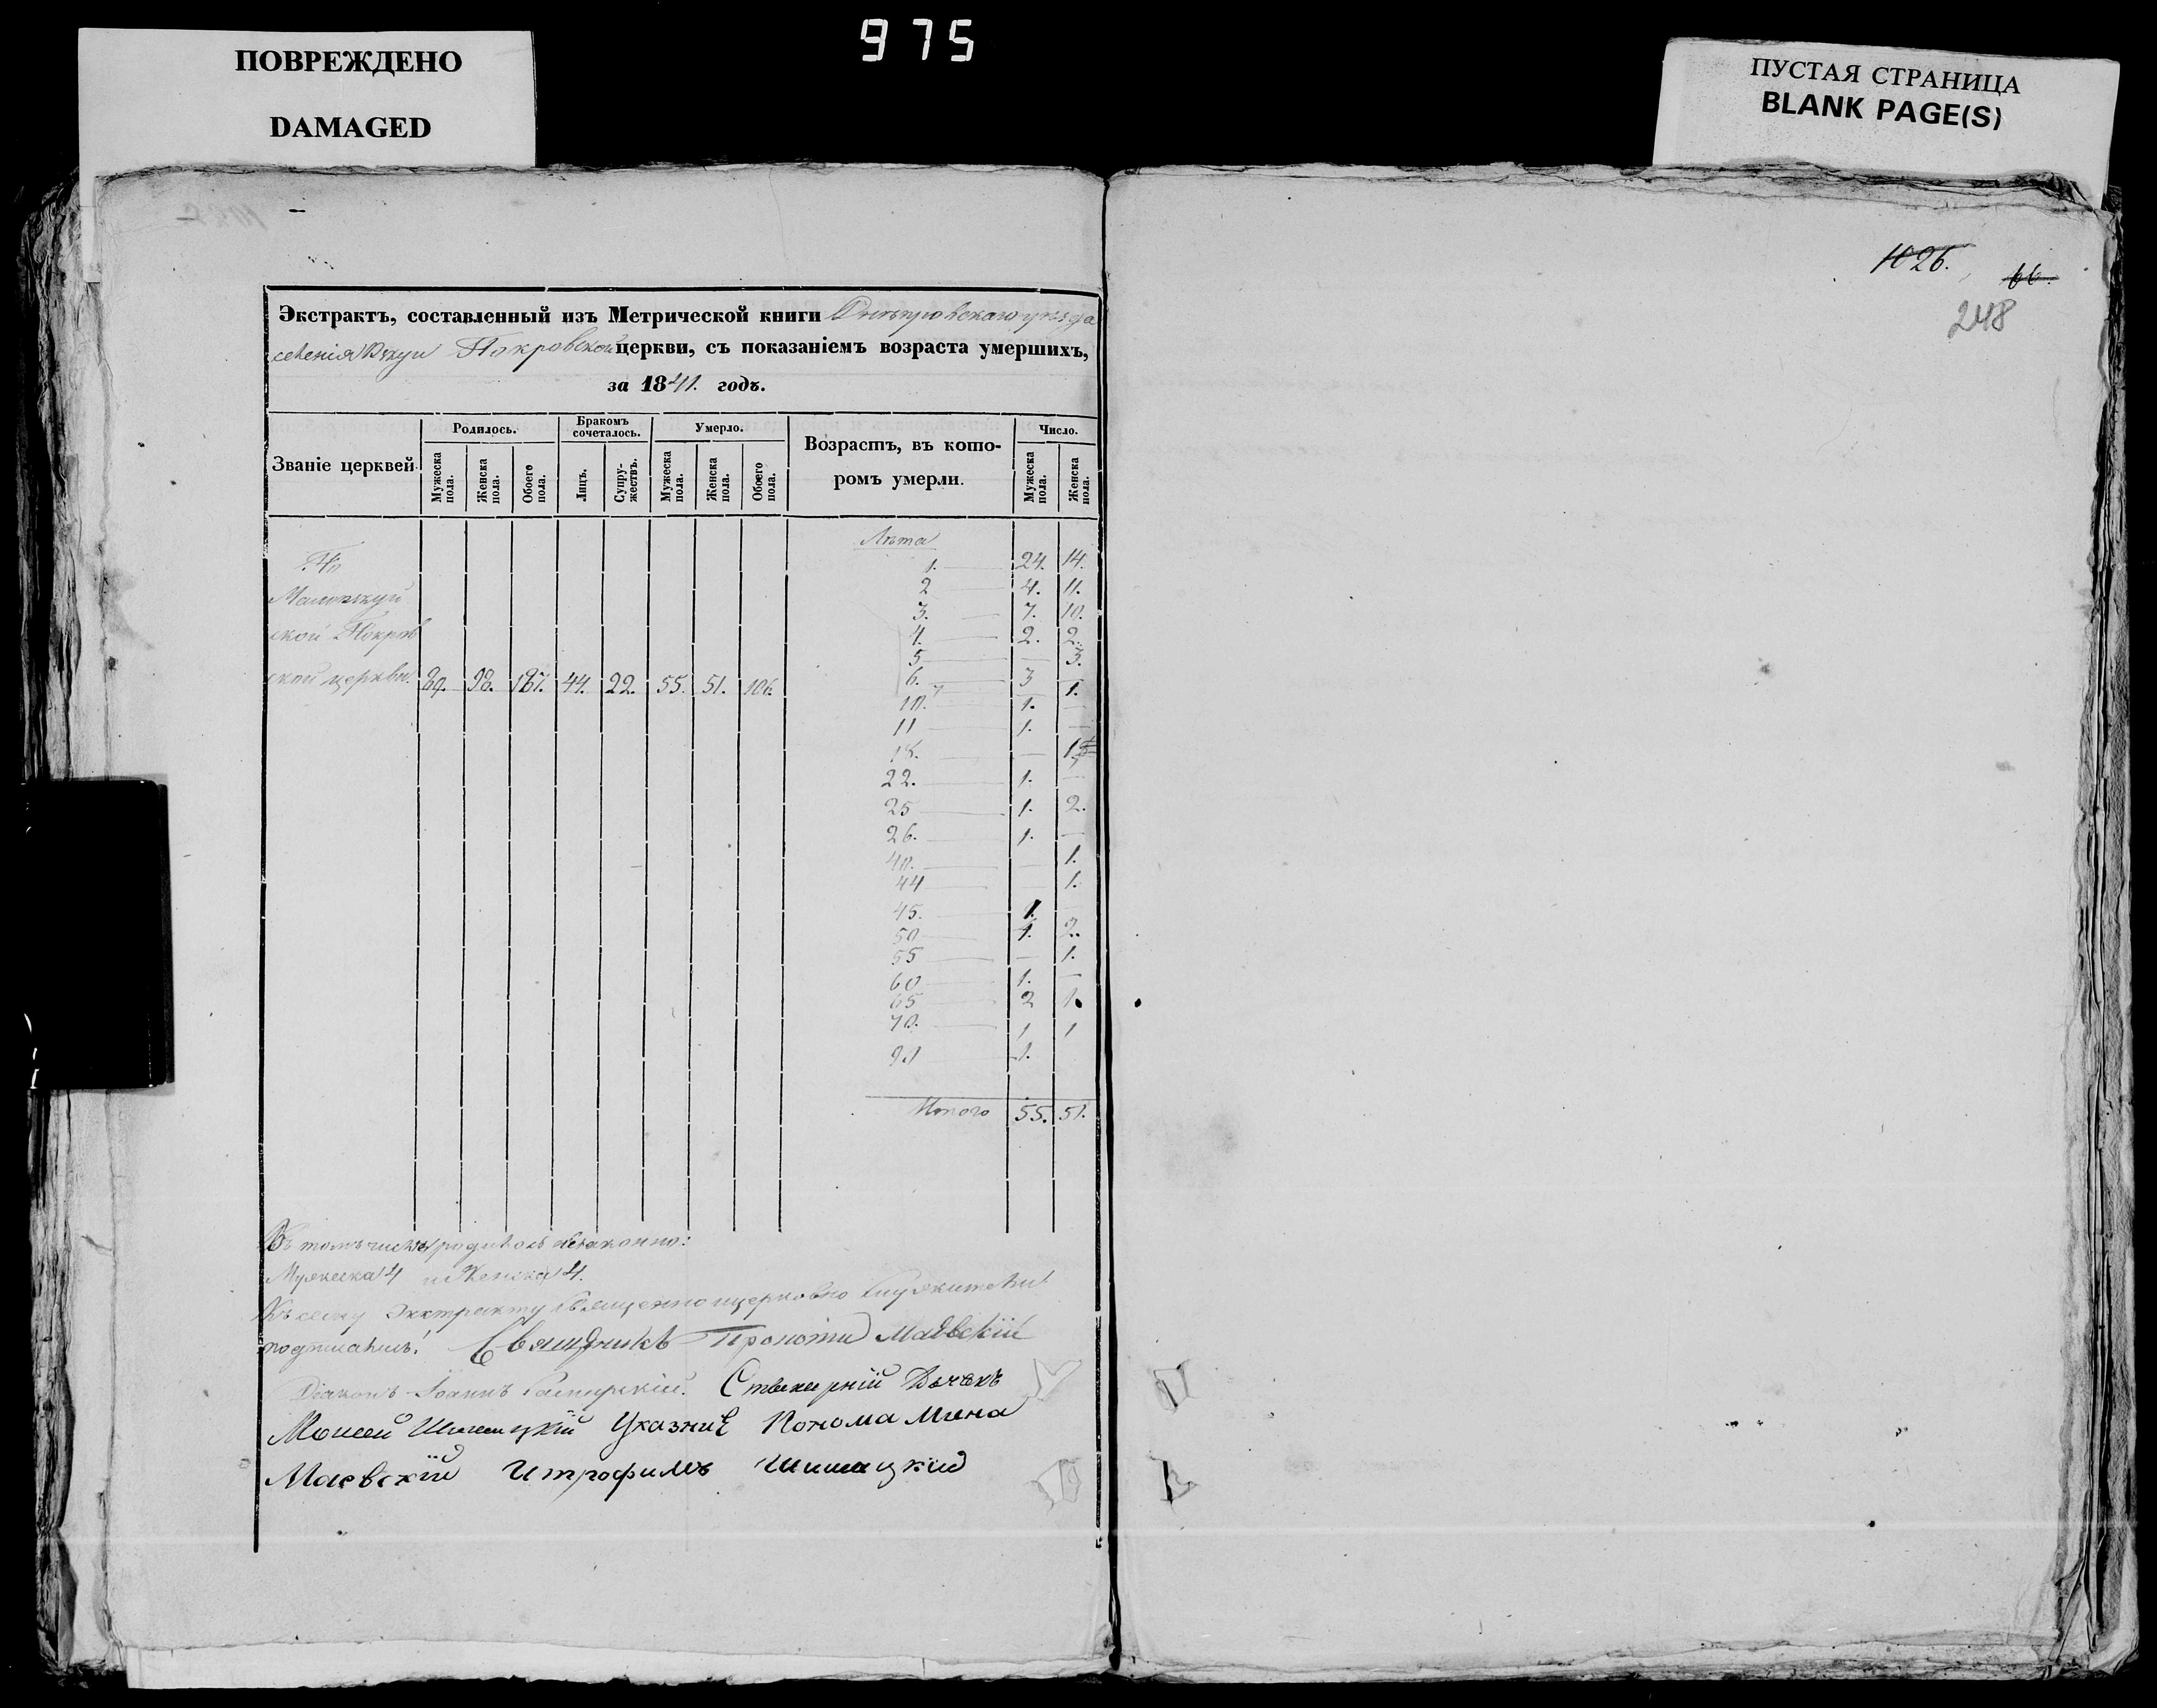 975
ПОВРЕЖДЕНО
DAMAGED
ПУСТАЯ СТРАНИЦА
BLANK PAGE(S)
1026.
66.
248
Экстрактъ, составленный изъ Метрической книги Днѣпровскаго уѣзда
селенія Покровской церкви, съ показаніемъ возраста умершихъ,
за 1841. годъ.
Званіе церквей
Родилось.
Бракомъ сочеталось.
Умерло.
Возрастъ, въ кото-
ромъ умерли.
Число.
Мужеска пола.
Женска пола.
Обоего пола.
Лицъ.
Супру-жествъ.
Мужеска пола.
Женска пола.
Обоего пола.
Мужеска пола.
Женска пола.
Лѣта
1. 24. 14.
2 4. 11.
3. 7. 10.
4. 2. 2.
5 — 3.
6. 3 —
7 1.
10. 1. —
11 1. —
18. — 1
22. 1. —
25 1. 2.
26. 1. —
40. — 1.
44 — 1.
45. 1. —
50 1. 2.
55 — 1.
60 1. —
65 2 1.
70. 1 1
90 1.
Итого 55. 51.
ской Покров
ской церкви. 89. 98. 187. 44. 22. 55. 51. 106.
Въ томъ числѣ родилось незаконно:
Мужеска 4 и Женска 4.
Къ сему Экстракту Священно и церковно служители
подписались: Маевскій
Діаконъ Іоаннъ
Пономар Мина
Маевскій Шишацкій